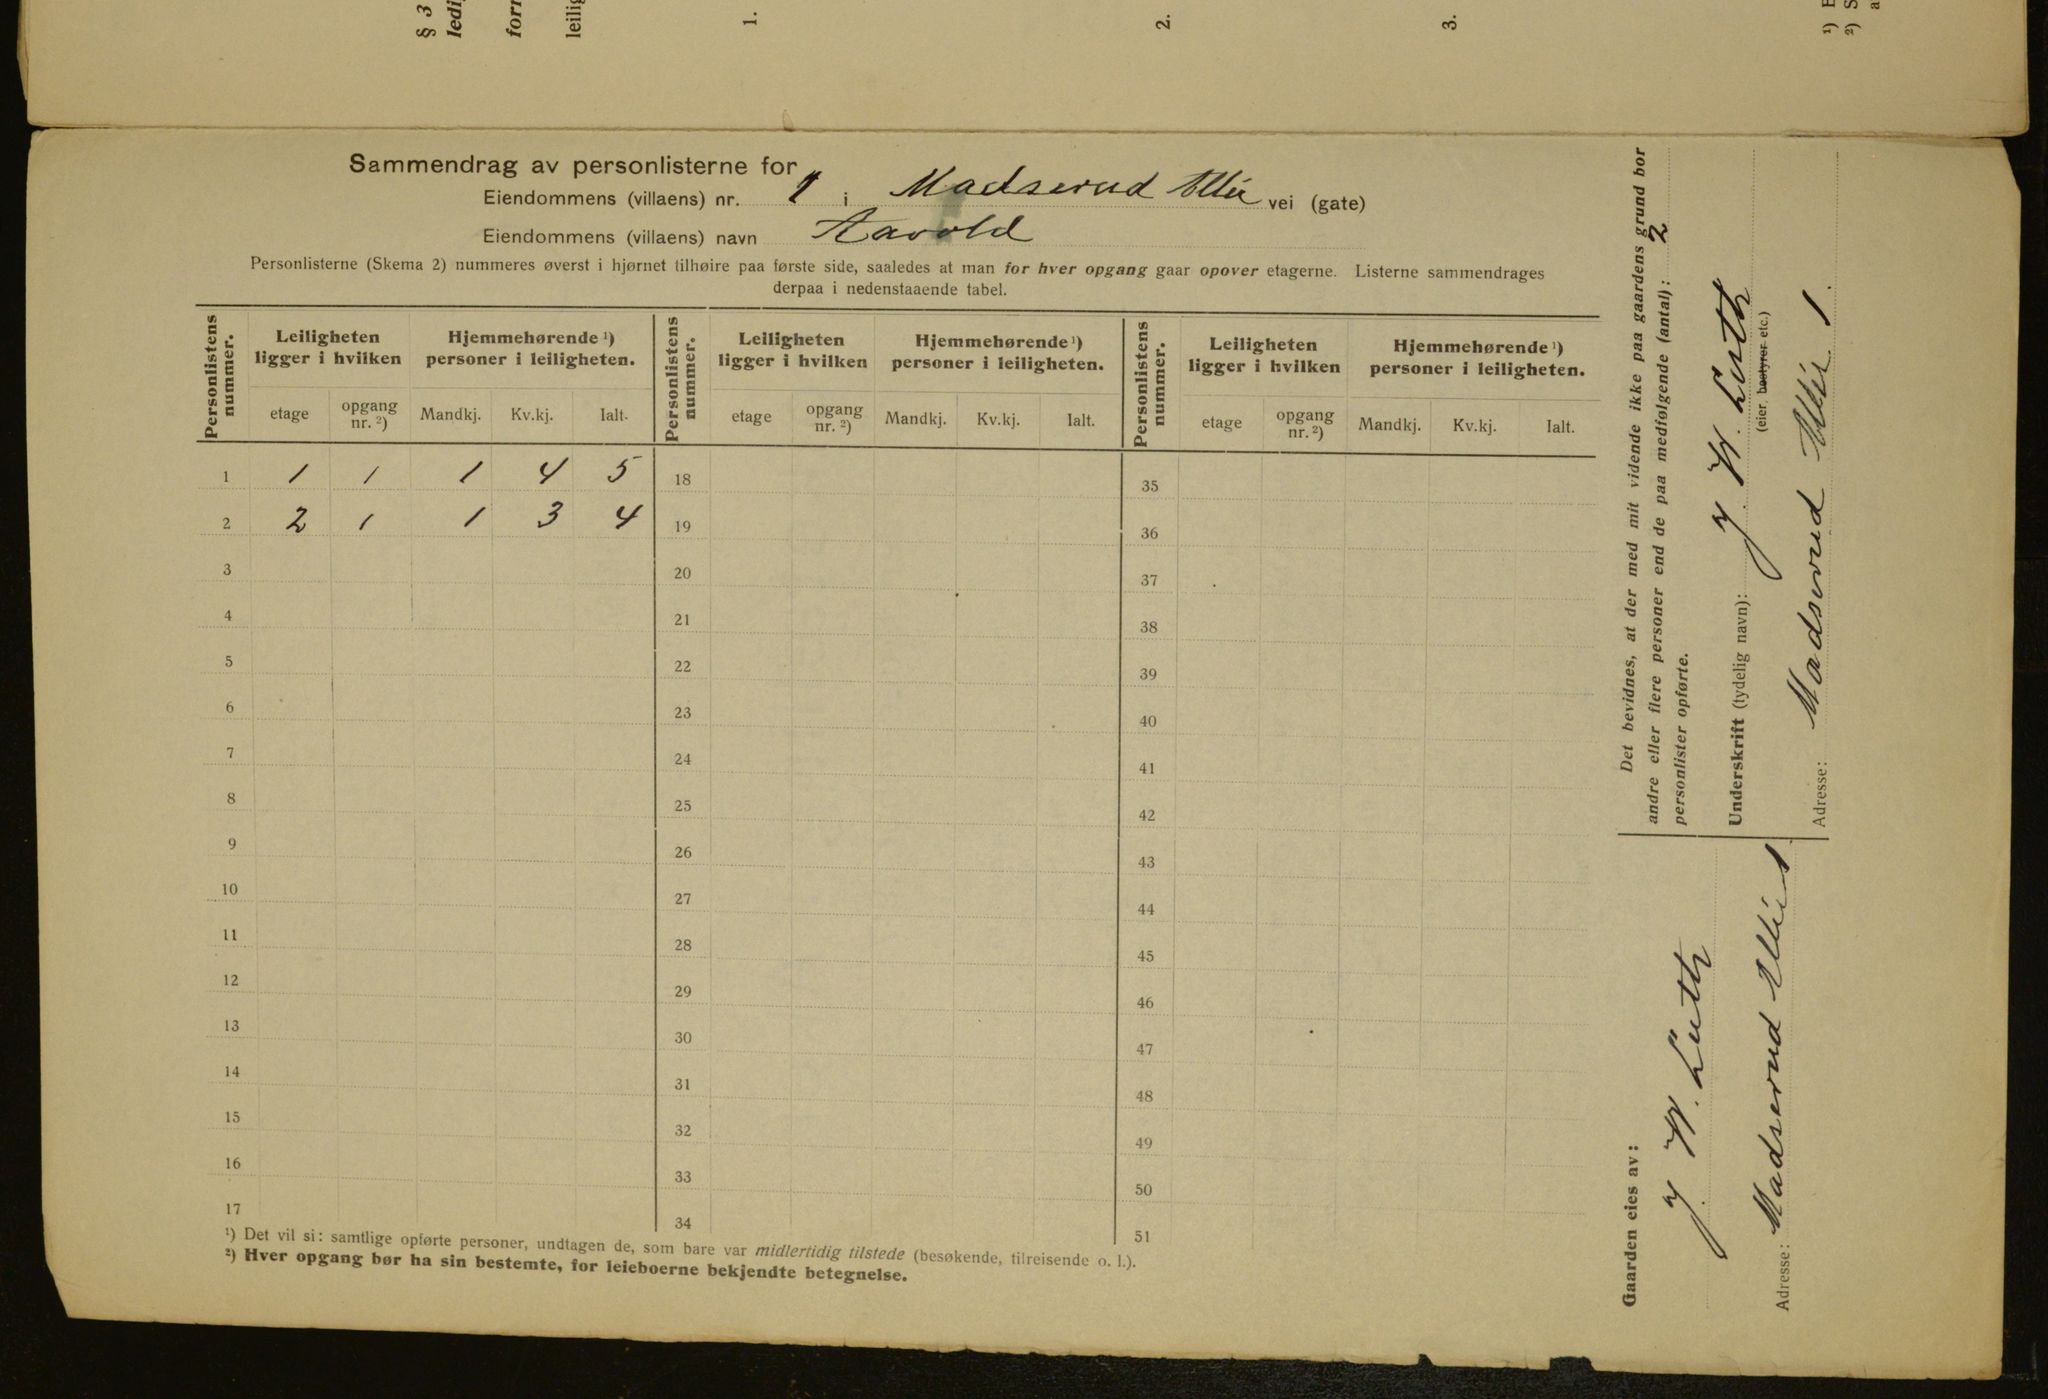 § 3
1.
2.
3.
Sammendrag av personlisterne for
Eiendommens (villaens) nr. 1 i Madserud Allé vei (gate)
Eiendommens (villaens) navn Aavold
Personlisterne (Skema 2) nummeres øverst i hjørnet tilhøire paa første side, saaledes at man for hver opgang gaar opover etagerne. Listerne sammendrages
derpaa i nedenstaaende tabel.
Personlistens nummer. Leiligheten ligger i hvilken Hjemmehørende ¹) personer i leiligheten. Personlistens nummer. Leiligheten ligger i hvilken Hjemmehørende ¹) personer i leiligheten. Personlistens nummer. Leiligheten ligger i hvilken Hjemmehørende ¹) personer i leiligheten.
etage opgang nr. ²) Mandkj. Kv.kj. Ialt. etage opgang nr. ²) Mandkj. Kv.kj. Ialt. etage opgang nr. ²) Mandkj. Kv.kj. Ialt.
1 1 1 1 4 5 18 35
2 2 1 1 3 4 19 36
3 20 37
4 21 38
5 22 39
6 23 40
7 24 41
8 25 42
9 26 43
10 27 44
11 28 45
12 29 46
13 30 47
14 31 48
15 32 49
16 33 50
17 34 51
¹) Det vil si: samtlige opførte personer, undtagen de, som bare var midlertidig tilstede (besøkende, tilreisende o. l.).
²) Hver opgang bør ha sin bestemte, for leieboerne bekjendte betegnelse.
Det bevidnes, at der med mit vidende ikke paa gaardens grund bor
andre eller flere personer end de paa medfølgende (antal): 2
personlister opførte.
Underskrift (tydelig navn): J. W. Lüth
(eier, bestyrer etc.)
Adresse: Madserud Allé 1.
Gaarden eies av:
J. W. Lüth
Adresse: Madserud Allé 1